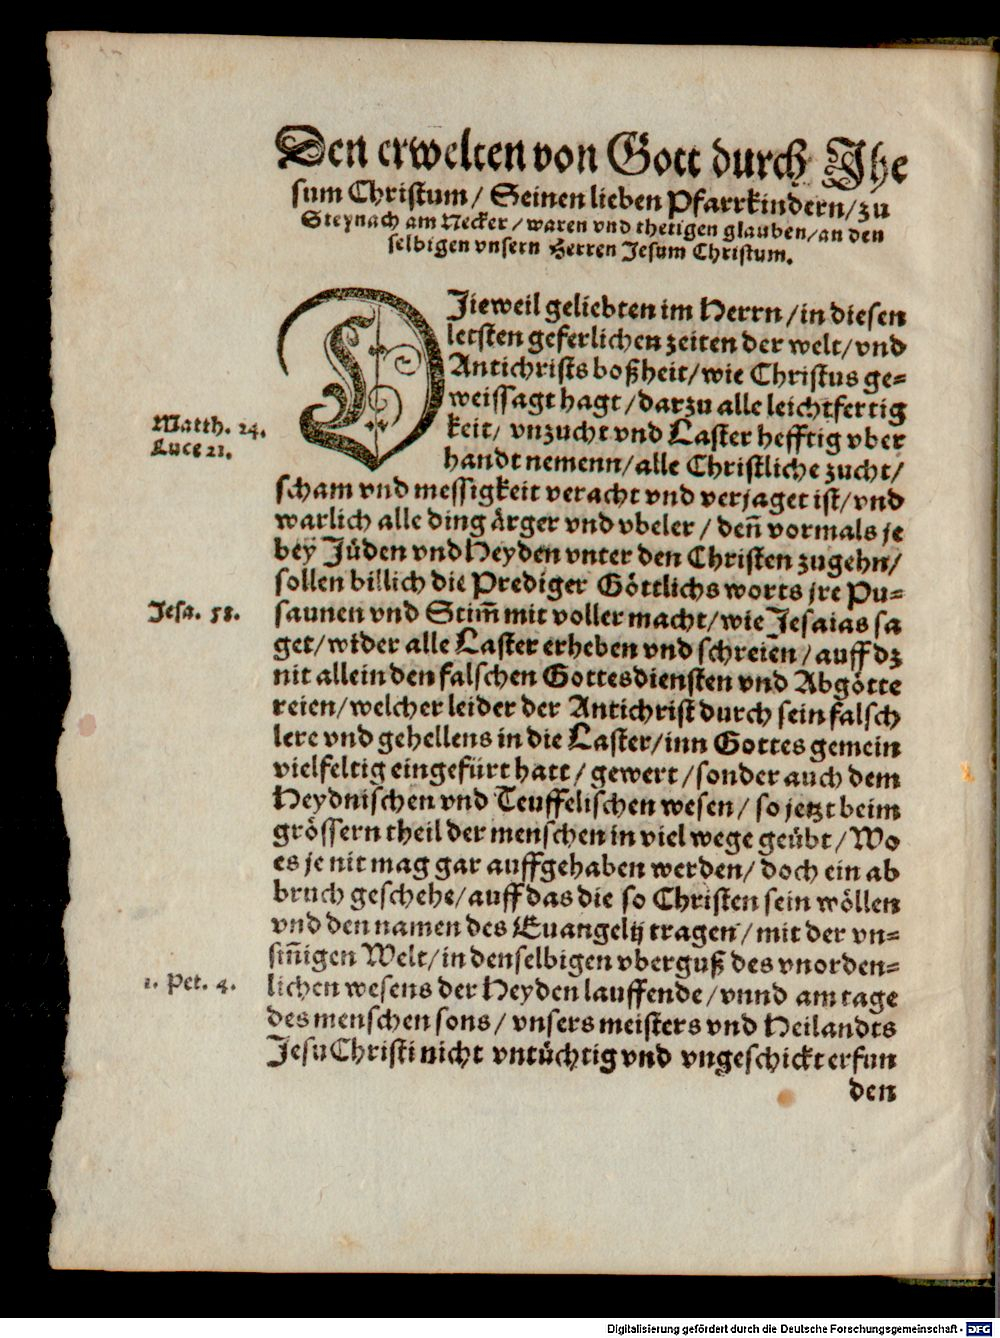 Den erwelten von Gott durch Jhe
sum Christum / Seinen lieben Pfarrkindern / zu
Steynach am Necker / waren vnd thetigen glauben / an den
selbigen vnsern Herren Jesum Christum.
DJieweil geliebten im Herrn / in diesen
letsten geferlichen zeiten der welt / vnd
Antichrists boßheit / wie Christus ge=
weissagt hagt / darzu alle leichtfertig
Matth. 24.
keit / vnzucht vnd Laster hefftig vber
Luce 21.
handt nemenn / alle Christliche zucht /
scham vnd messigkeit veracht vnd verjaget ist / vnd
warlich alle ding ärger vnd vbeler / den̄ vormals je
bey Jüden vnd Heyden vnter den Christen zugehn /
sollen billich die Prediger Göttlichs worts jre Pu=
Jesa. 58.
saunen vnd Stim̄ mit voller macht / wie Jesaias sa
get / wider alle Laster erheben vnd schreien / auff dz
nit allein den falschen Gottesdiensten vnd Abgötte
reien / welcher leider der Antichrist durch sein falsch
lere vnd gehellens in die Laster / inn Gottes gemein
vielfeltig eingefürt hatt / gewert / sonder auch dem
Heydnischen vnd Teuffelischen wesen / so jetzt beim
grössern theil der menschen in viel wege geübt / Wo
es je nit mag gar auffgehaben werden / doch ein ab
bruch geschehe / auff das die so Christen sein wöllen
vnd den namen des Euangelij tragen / mit der vn=
sin̄igen Welt / in denselbigen vberguß des vnorden=
1. Pet. 4.
lichen wesens der Heyden lauffende / vnnd am tage
des menschen sons / vnsers meisters vnd Heilandts
Jesu Christi nicht vntüchtig vnd vngeschickt erfun
den
Digitalisierung gefördert durch die Deutsche Forschungsgemeinschaft - DFG